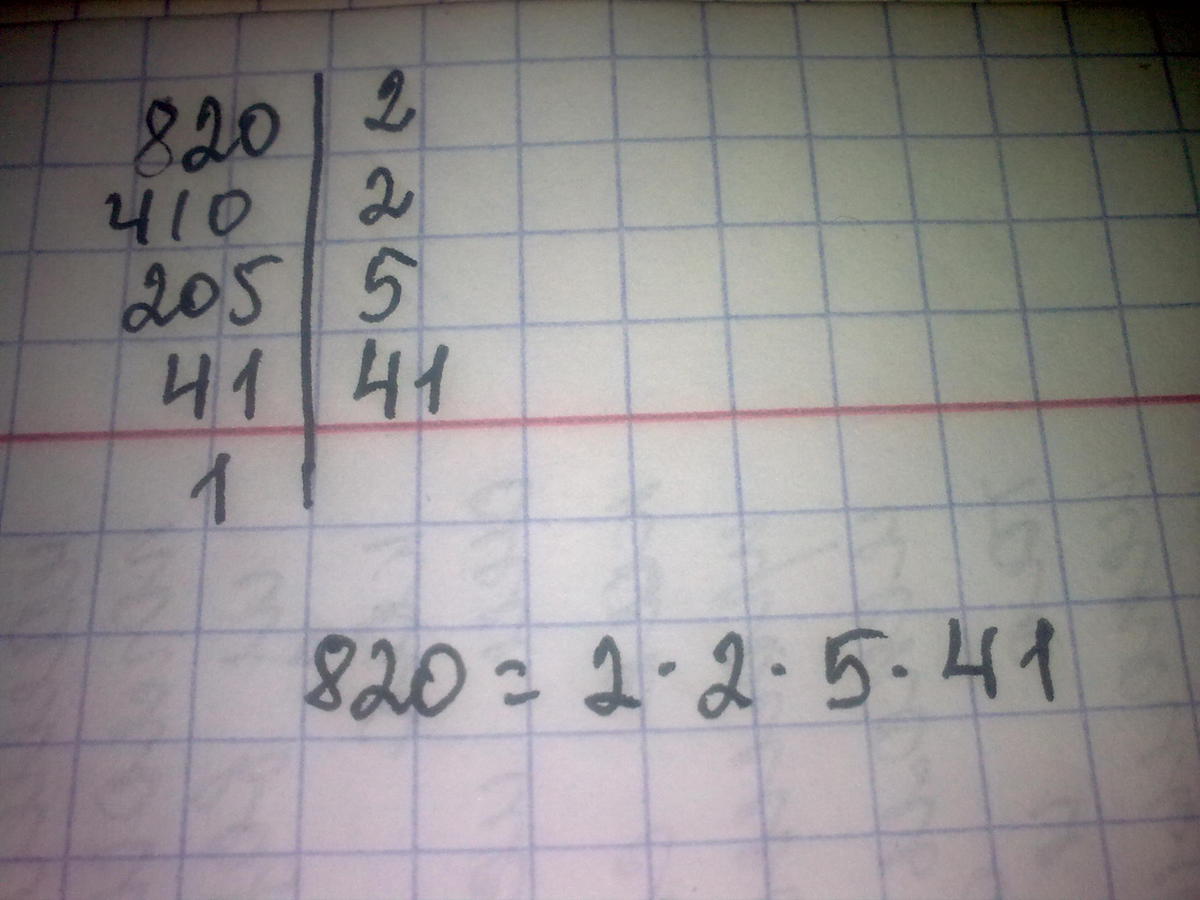 820 | 2
410 | 2
205 | 5
41 | 41
1 |
820 = 2 · 2 · 5 · 41